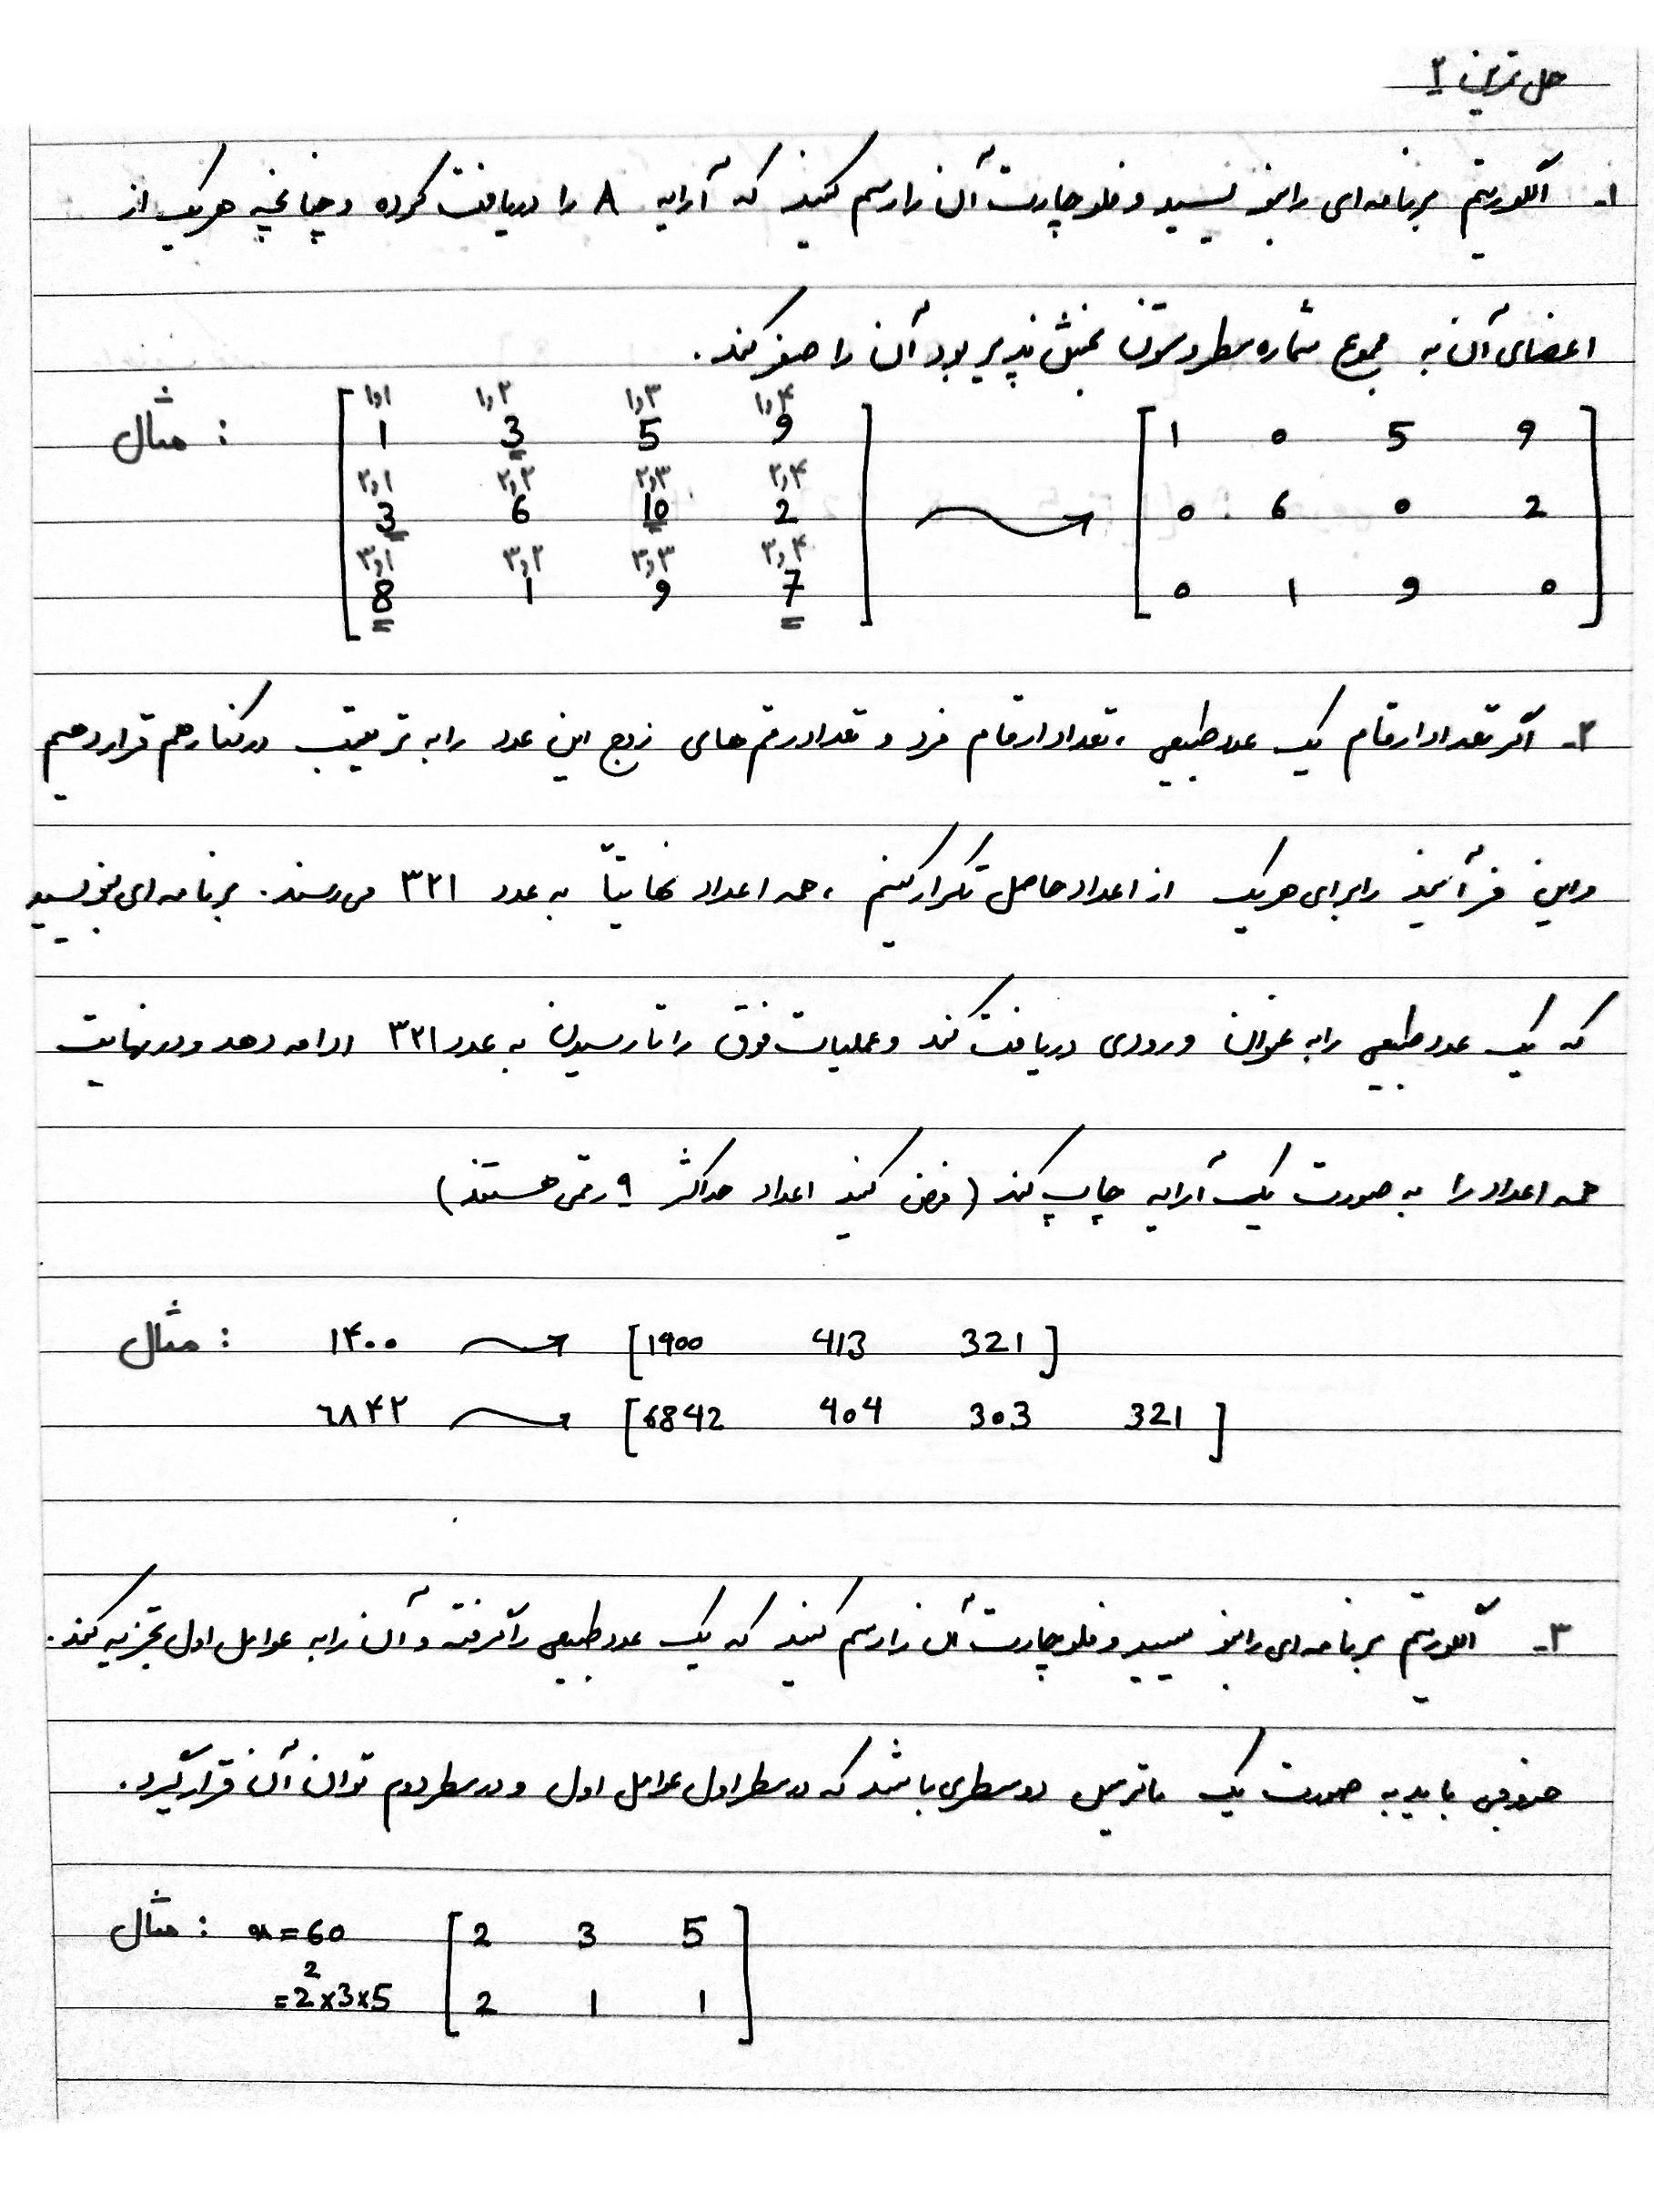 حل تمرین ۲
۱- الگوریتم برنامه‌ای را بنویسید و فلوچارت آن را رسم کنید که آرایه A را دریافت کرده و چنانچه هریک از
اعضای آن به مجموع شماره سطر و ستون بخش‌پذیر بود آن را صفر کند.
مثال :
۱,۱ ۱,۲ ۱,۳ ۱,۴
1 3 5 9 1 0 5 9
۲,۱ ۲,۲ ۲,۳ ۲,۴
3 6 10 2 0 6 0 2
۳,۱ ۳,۲ ۳,۳ ۳,۴
8 1 9 7 0 1 9 0
۲- اگر تعداد ارقام یک عدد طبیعی ، تعداد ارقام فرد و تعداد رقم‌های زوج این عدد را به ترتیب در کنار هم قرار دهیم
و این فرآیند را برای هریک از اعداد حاصل تکرار کنیم ، همه اعداد نهایتاً به عدد ۳۲۱ می‌رسند. برنامه‌ای بنویسید
که یک عدد طبیعی را به عنوان ورودی دریافت کند و عملیات فوق را تا رسیدن به عدد ۳۲۱ ادامه دهد و در نهایت
همه اعداد را به صورت یک آرایه چاپ کند (فرض کنید اعداد حداکثر ۹ رقمی هستند)
مثال : ۱۴۰۰ [1400 413 321]
۶۸۴۲ [6842 404 303 321]
۳- الگوریتم برنامه‌ای را بنویسید و فلوچارت آن را رسم کنید که یک عدد طبیعی را گرفته و آن را به عوامل اول تجزیه کند.
خروجی باید به صورت یک ماتریس دو سطری باشد که در سطر اول عوامل اول و در سطر دوم توان آن قرار گیرد.
مثال : n=60 [2 3 5
=2²×3×5 2 1 1]